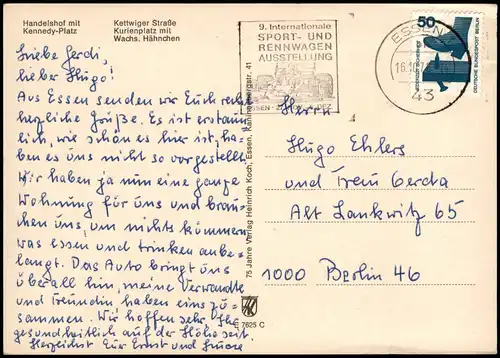 Handelshof mit
Kennedy-Platz
Kettwiger Straße
Kurienplatz mit
Wachs. Hähnchen
9. Internationale
SPORT- UND
RENNWAGEN
AUSSTELLUNG
ESSEN
43
50
DEUTSCHE BUNDESPOST BERLIN
Liebe Gerdi,
lieber Hugo!
Aus Essen senden wir Euch recht
herzliche Grüße. Es ist erstaun
lich, wie schön es hier ist, ha-
ben es uns nicht so vorgestellt.
Wir haben ja nun eine ganze
Wohnung für uns und brau-
chen uns, um nichts kümmern,
was essen und trinken anbe-
langt. Das Auto bringt uns
überall hin, meine Verwandte
und Freundin haben eins zu-
sammen. Wir hoffen sehr, Ihr
gesundheitlich auf der Höhe seit.
Herzlichst Eur Ernst und
75 Jahre Verlag Heinrich Koch, Essen, 41
E 7625 C
Herrn
Hugo Ehlers
und Frau Gerda
Alt Lankwitz 65
1000 Berlin 46